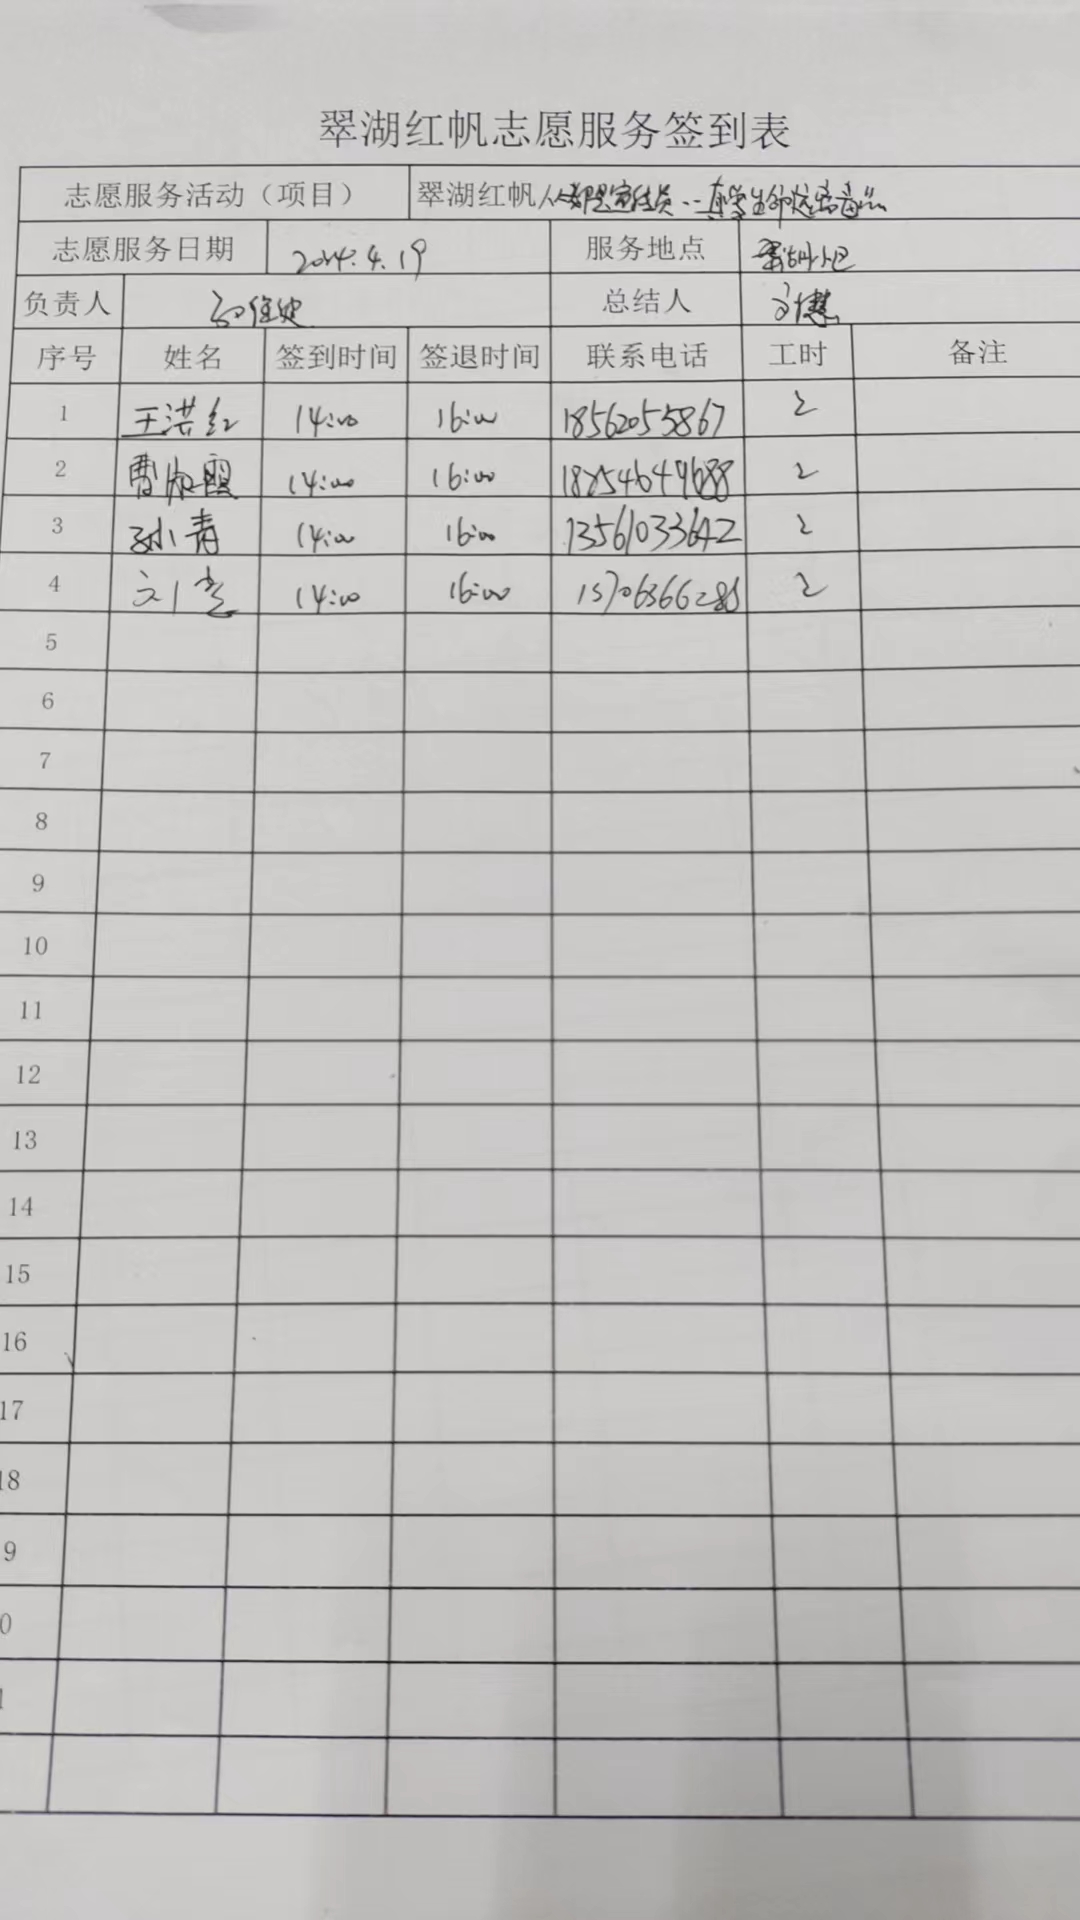 翠湖红帆志愿服务签到表
志愿服务活动（项目） 翠湖红帆人人都是宣传员
志愿服务日期 2024.4.19 服务地点 翠湖小区
负责人 总结人 刘慧
序号 姓名 签到时间 签退时间 联系电话 工时 备注
1 王洪红 14:00 16:00 18562055867 2
2 曹 霞 14:00 16:00 2
3 孙青 14:00 16:00 13561033642 2
4 刘 14:00 16:00 2
5
6
7
8
9
10
11
12
13
14
15
16
17
18
9
0
1